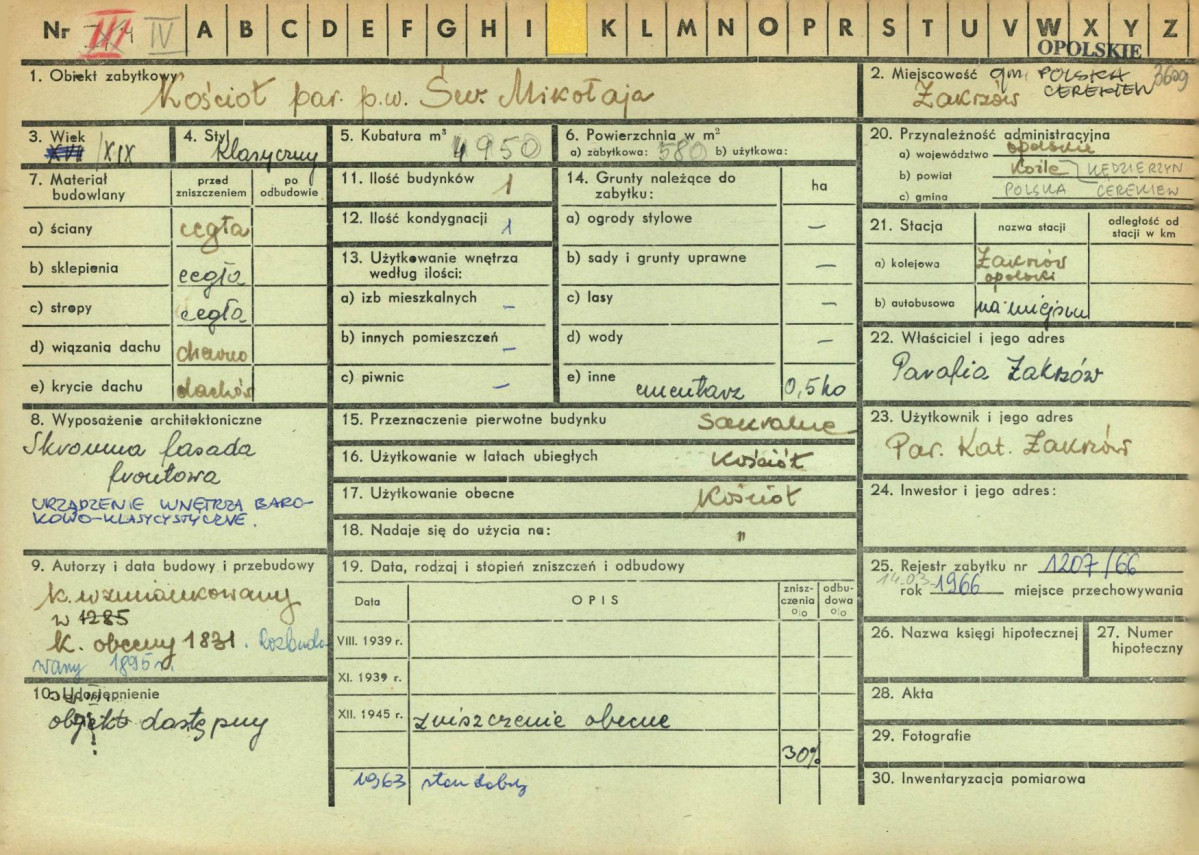 Nr III IV A B C D E F G H I K L M N O P R S T U V W X Y Z
OPOLSKIE
1. Obiekt zabytkowy
Kościół par. p.w. Św. Mikołaja
2. Miejscowość gm. POLSKA
Zakrzów CEREKIEW
3. Wiek
XVI/XIX
4. Styl
Klasyczny
5. Kubatura m³
4950
6. Powierzchnia w m²
a) zabytkowa: 580 b) użytkowa:
7. Materiał budowlany
przed zniszczeniem
po odbudowie
a) ściany cegła
b) sklepienia cegła
c) stropy cegła
d) wiązania dachu drewno
e) krycie dachu dachów
8. Wyposażenie architektoniczne
Skromna fasada
frontowa
URZĄDZENIE WNĘTRZA BARO-
KOWO-KLASYCYSTYCZNE.
9. Autorzy i data budowy i przebudowy
K. wzmiankowany
w 1285
K. obecny 1831. Rozbudo-
wany 1895 r.
10. Udostępnienie
obiekt dostępny
11. Ilość budynków 1
12. Ilość kondygnacji 1
13. Użytkowanie wnętrza
według ilości:
a) izb mieszkalnych –
b) innych pomieszczeń –
c) piwnic –
14. Grunty należące do
zabytku:
ha
a) ogrody stylowe –
b) sady i grunty uprawne –
c) lasy –
d) wody –
e) inne cmentarz 0,5 ha
15. Przeznaczenie pierwotne budynku sakralne
16. Użytkowanie w latach ubiegłych Kościół
17. Użytkowanie obecne Kościół
18. Nadaje się do użycia na: "
19. Data, rodzaj i stopień zniszczeń i odbudowy
Data
OPIS
znisz-
czenia
%
odbu-
dowa
%
VIII. 1939 r.
XI. 1939 r.
XII. 1945 r. zniszczenie obecne
30%
1963 stan dobry
20. Przynależność administracyjna
a) województwo opolskie
b) powiat Koźle KĘDZIERZYN
c) gmina POLSKA CEREKIEW
21. Stacja
nazwa stacji
odległość od
stacji w km
a) kolejowa Zakrzów
opolski
b) autobusowa na miejscu
22. Właściciel i jego adres
Parafia Zakrzów
23. Użytkownik i jego adres
Par. Kat. Zakrzów
24. Inwestor i jego adres:
25. Rejestr zabytku nr 1207/66
14.03.
rok 1966 miejsce przechowywania
26. Nazwa księgi hipotecznej
27. Numer
hipoteczny
28. Akta
29. Fotografie
30. Inwentaryzacja pomiarowa